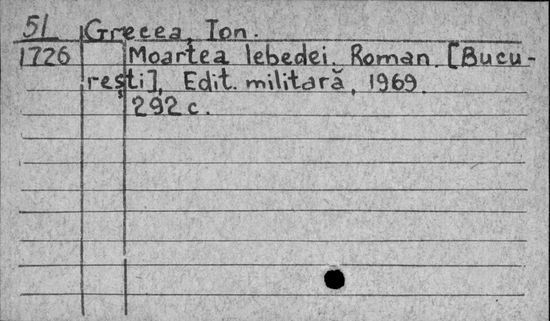 51 Grecea, Ion.
1726 Moartea lebedei. Roman. [Bucu-
rești], Edit. militară, 1969.
292 c.